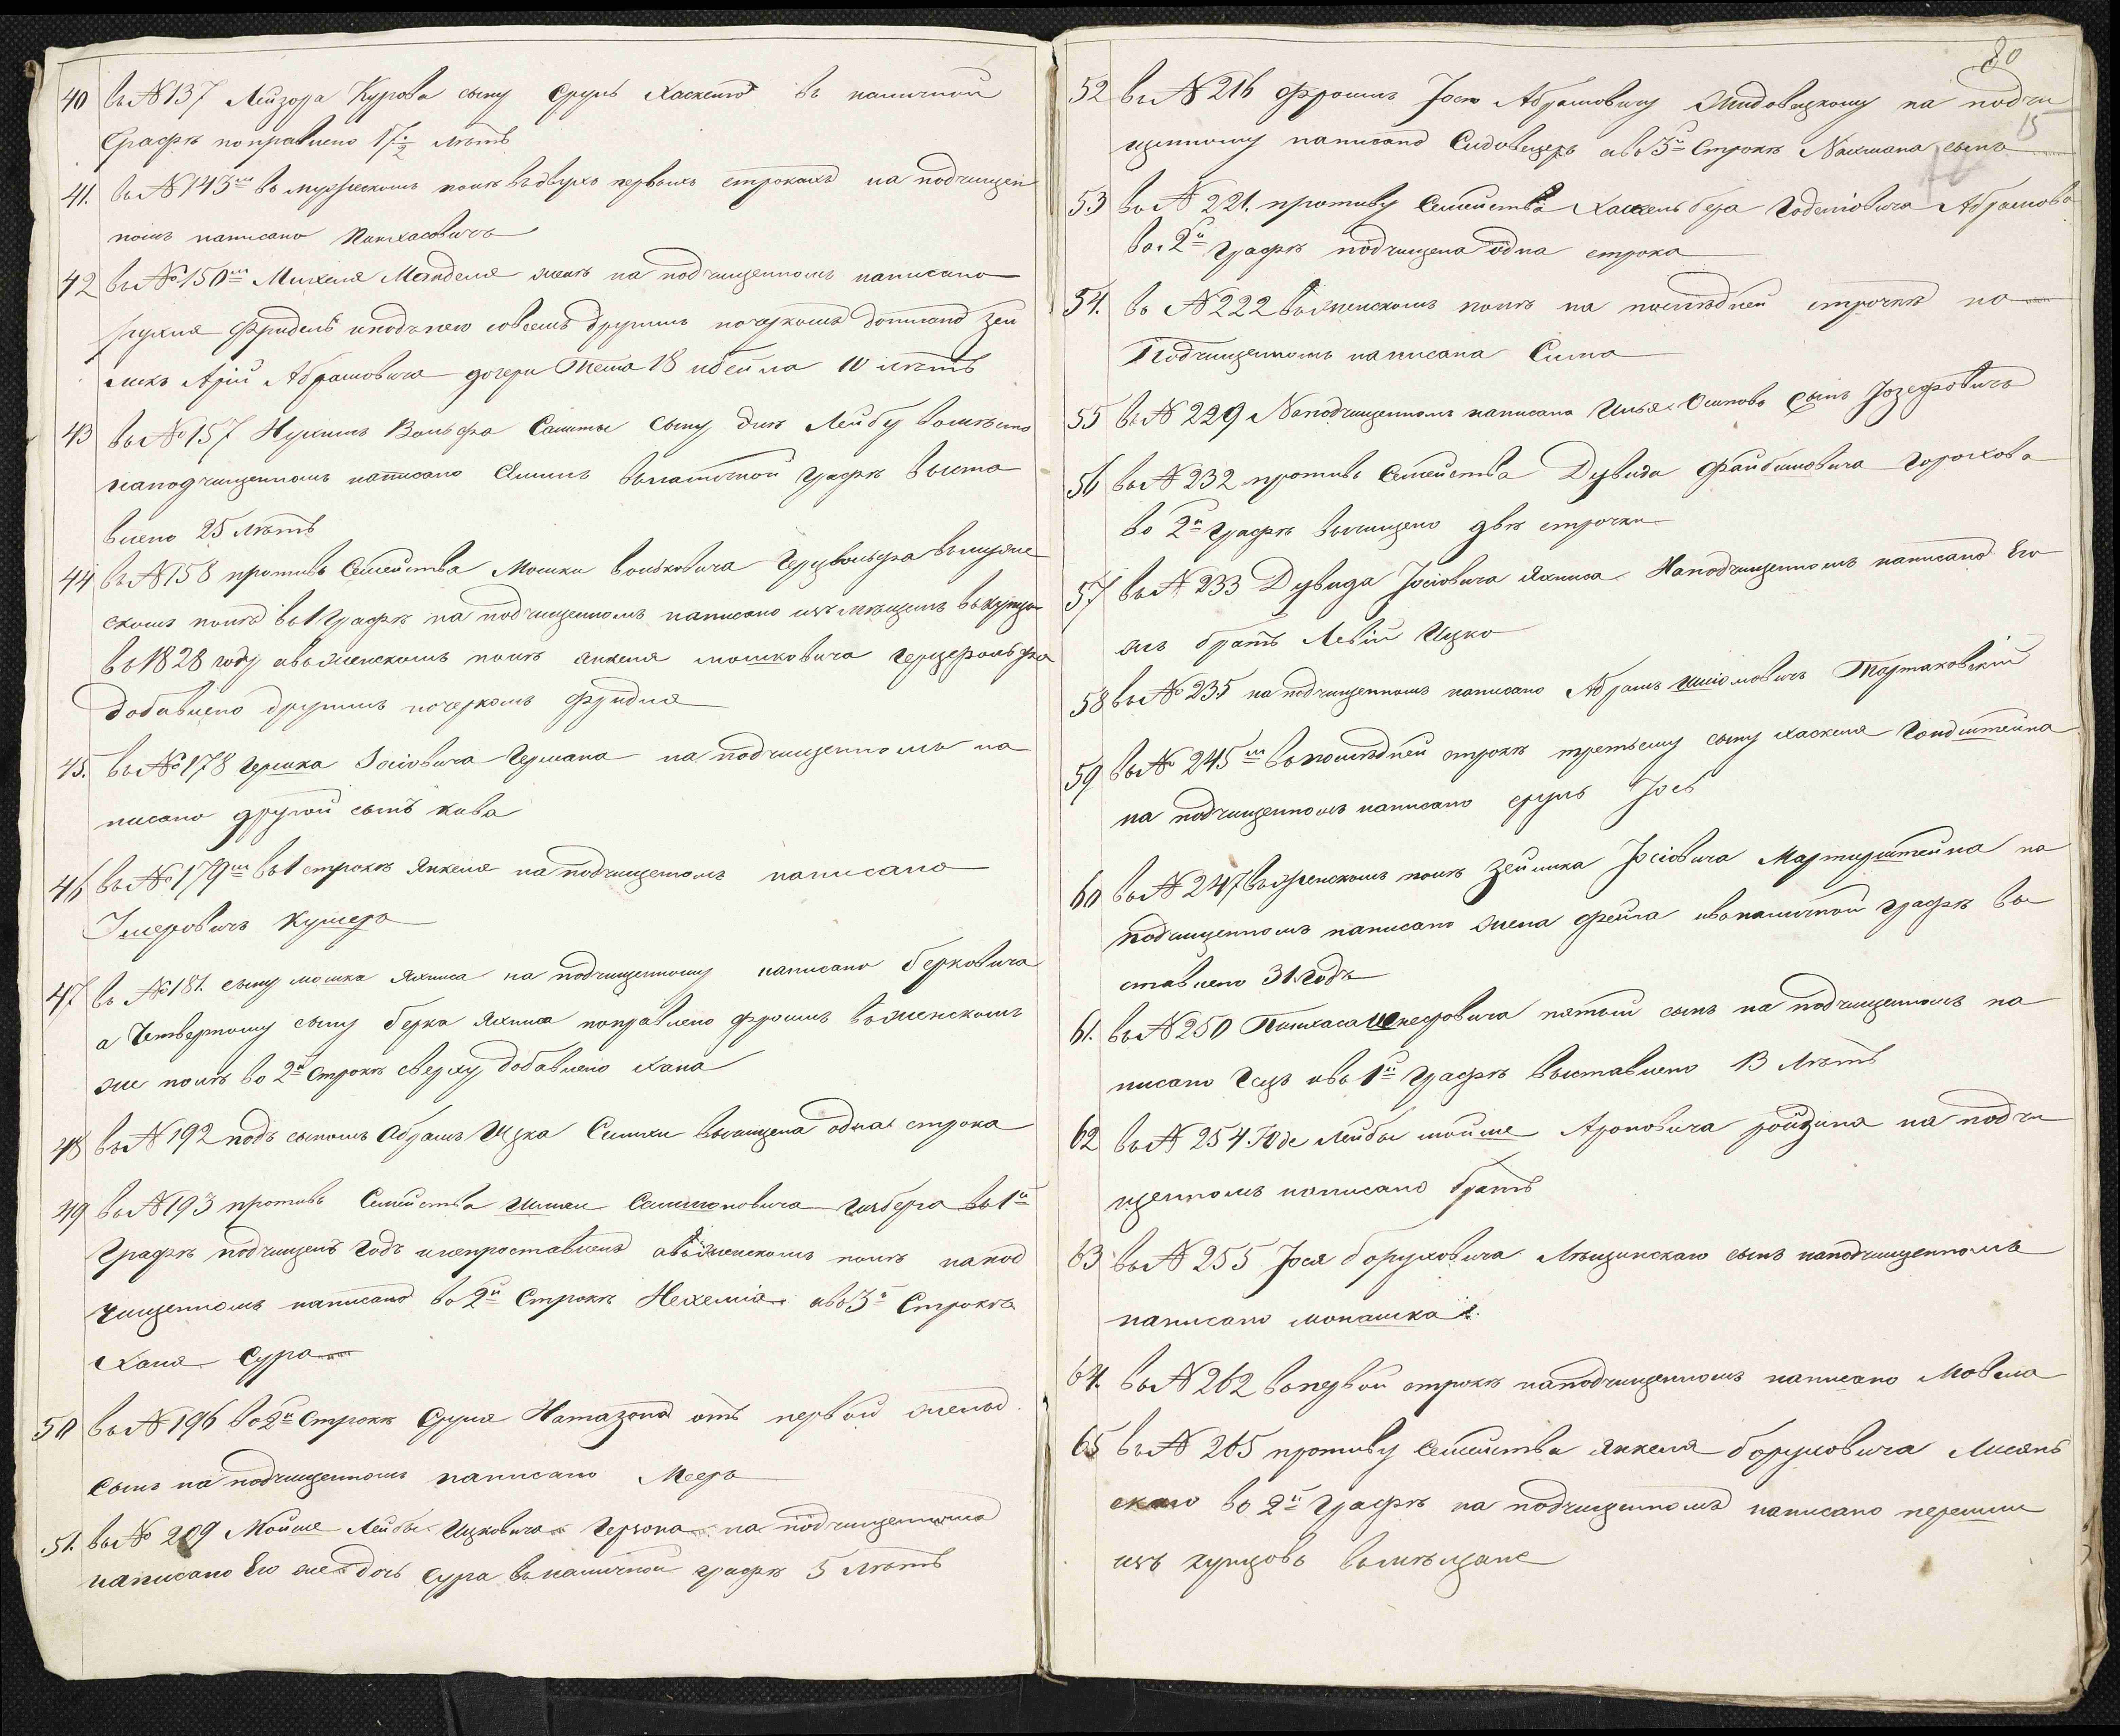 40 въ № 137 Лейзора Курова сыну Сруль Хаскелю въ наличной
Графѣ поправлено 17 1/2 лѣтъ
41. въ № 143м въ мужескомъ полѣ въ двухъ первыхъ строкахъ на подчищен
номъ написано Пинхасовичъ
42 въ № 150м Михеля Менделя женѣ на подчищенномъ написано
Фридель и подъ нею совсемъ другимъ почеркомъ дописано Зел
Арій Абрамовича дочери 18 и Бейла 10 лѣтъ
43 въ № 157 Нухимъ Вольфа сыну Лейбу вомѣсто
на подчищенномъ написано въ наличной графѣ выста
влено 25 лѣтъ
44 въ № 158 противъ Семейства Мошки Вольковича Герцвольфа въ муже
скомъ полѣ въ 1 Графѣ на подчищенномъ написано изъ мѣщанъ въ купцы
въ 1828 году а въ женскомъ полѣ Янкеля Мошковича Герцефольфа
добавлено другимъ почеркомъ Фридля
45. въ № 178 Гершка Іосіовича Германа на подчищенномъ на
писано другой сынъ Кива
46 въ № 179м въ 1 строкѣ Янкеля на подчищенномъ написано
Кушеръ
47 въ № 181. сыну Мошка Яхниса на подчищенному написано Берковича
а Четвертому сыну Берка Яхниса поправлено Фроимъ въ женскомъ
же полѣ во 2й строкѣ сверху добавлено Хана
48 въ № 192 подъ сыномъ Абрамъ Ицка Симхи вычищена одна строка
49 въ № 193 противъ Семейства Шмаи Симионовича въ 1й
Графѣ подчищенъ годъ и непроставленъ а въ женскомъ полѣ на под
чищенномъ написано во 2й Строкѣ Нехеміа а въ 3й Строкѣ
Хана Сура
50 въ № 196 во 2й Строкѣ Сруля Натазона отъ первой жены
сынъ на подчищенномъ написано Мееръ
51. въ № 209 Мойше Лейбы Ицковича Герзона на подчищенномъ
написано Его же дочь Сура въ наличной графѣ 5 лѣтъ
80
15
52 въ № 216 Фроимъ Іосю Абрамовичу Жидовецкому на подчи
щенному написано Сидовецеръ а въ 3й Строкѣ Нахмана сынъ
53 въ № 221. противу Семейства Хаскель Бера Годелiовича Абрамова
во 2й графѣ подчищена одна строка
54. въ № 222 въ женскомъ полѣ на послѣдней строчкѣ по
Подчищенномъ написана Сима
55 въ № 229 На подчищенномъ написано Илья Осиповъ сынъ Іозефовичъ
56 въ № 232 противъ Семейства Дувида Файбишовича Горохова
во 2й графѣ вычищено двѣ строчки
57 въ № 233 Дувида Іосіовича Яхниса На подчищенномъ написано Его
же братъ Левій Ицко
58 въ № 235 на подчищенномъ написано Абрамъ Шліомовичъ Тартаковскій
59 въ № 245м въ послѣдней строкѣ третьему сыну Хаскеля Гольдштейна
на подчищенномъ написано Сруль Іось
60 въ № 247 въ женскомъ полѣ Зейлика Іосіовича на
подчищенномъ написано жена Фейга и въ наличной графѣ вы
ставлено 31 годъ
61. въ № 250 Пинхаса пятый сынъ на подчищенномъ на
писано Гецъ и въ 1й графѣ выставлено 13 лѣтъ
62 въ № 254 Юде Лейбы Мойше Ароновича Ройзина на подчи
щенномъ написано братъ
63 въ № 255 Іося Боруховича Лещинскаго сынъ на подчищенномъ
написано Монашка
64. въ № 262 въ первой строкѣ на подчищенномъ написано Мовша
65 въ № 265 противу Семейства Янкеля Боруховича Лисян
скаго во 2й графѣ на подчищенномъ написано перешли
изъ купцовъ въ мѣщане